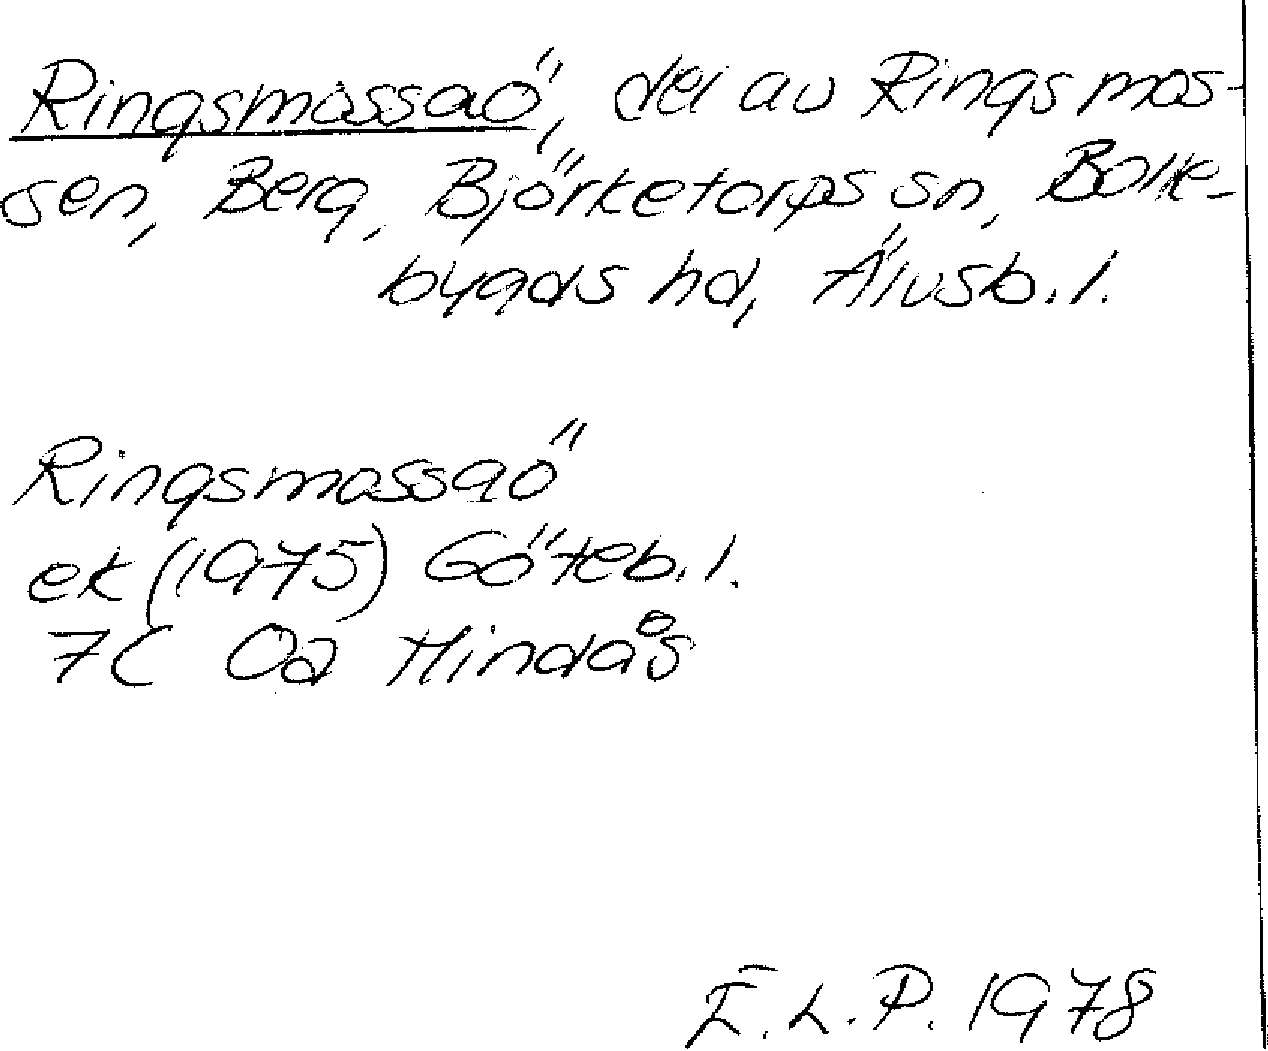 Ringsmossaö, del av Ringsmos-
sen, Berg, Björketorps sn, Bolle-
bygds hd, Älvsb. l.
Ringsmossaö
ek (1975) Göteb. l.
7C 0a Hindås
E.L.P. 1978